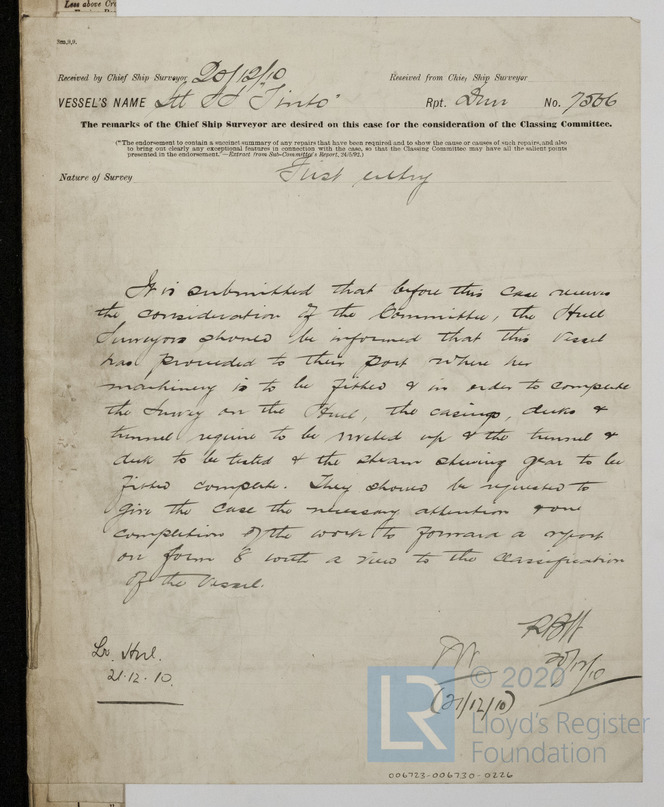 Less above
Received by Chief Ship Surveyor 20/12/10 Received from Chief Ship Surveyor
VESSEL'S NAME Tinto" Rpt. Dun No. 7506
The remarks of the Chief Ship Surveyor are desired on this case for the consideration of the Classing Committee.
("The endorsement to contain a succinct summary of any repairs that have been required and to show the cause or causes of such repairs, and also
to bring out clearly any exceptional features in connection with the case, so that the Classing Committee may have all the salient points
presented in the endorsement."—Extract from Sub-Committee's Report, 24/5/92.)
Nature of Survey First entry
It is submitted that before this case receives
the consideration of the Committee, the Hull
Surveyors should be informed that this Vessel
has proceeded to their port where her
machinery is to be fitted & in order to complete
the Survey on the Hull, the casings, decks &
tunnel require to be riveted up & the tunnel &
deck to be tested & the steam steering gear to be
fitted complete. They should be requested to
give the case the necessary attention & on
completion of the work to forward a report
on form 8 with a view to the classification
of the Vessel.
RBH
20/12/10
Lr. Hul.
21.12.10.
(21/12/10)
© 2020
LR
Lloyd's Register
Foundation
006723-006730-0226